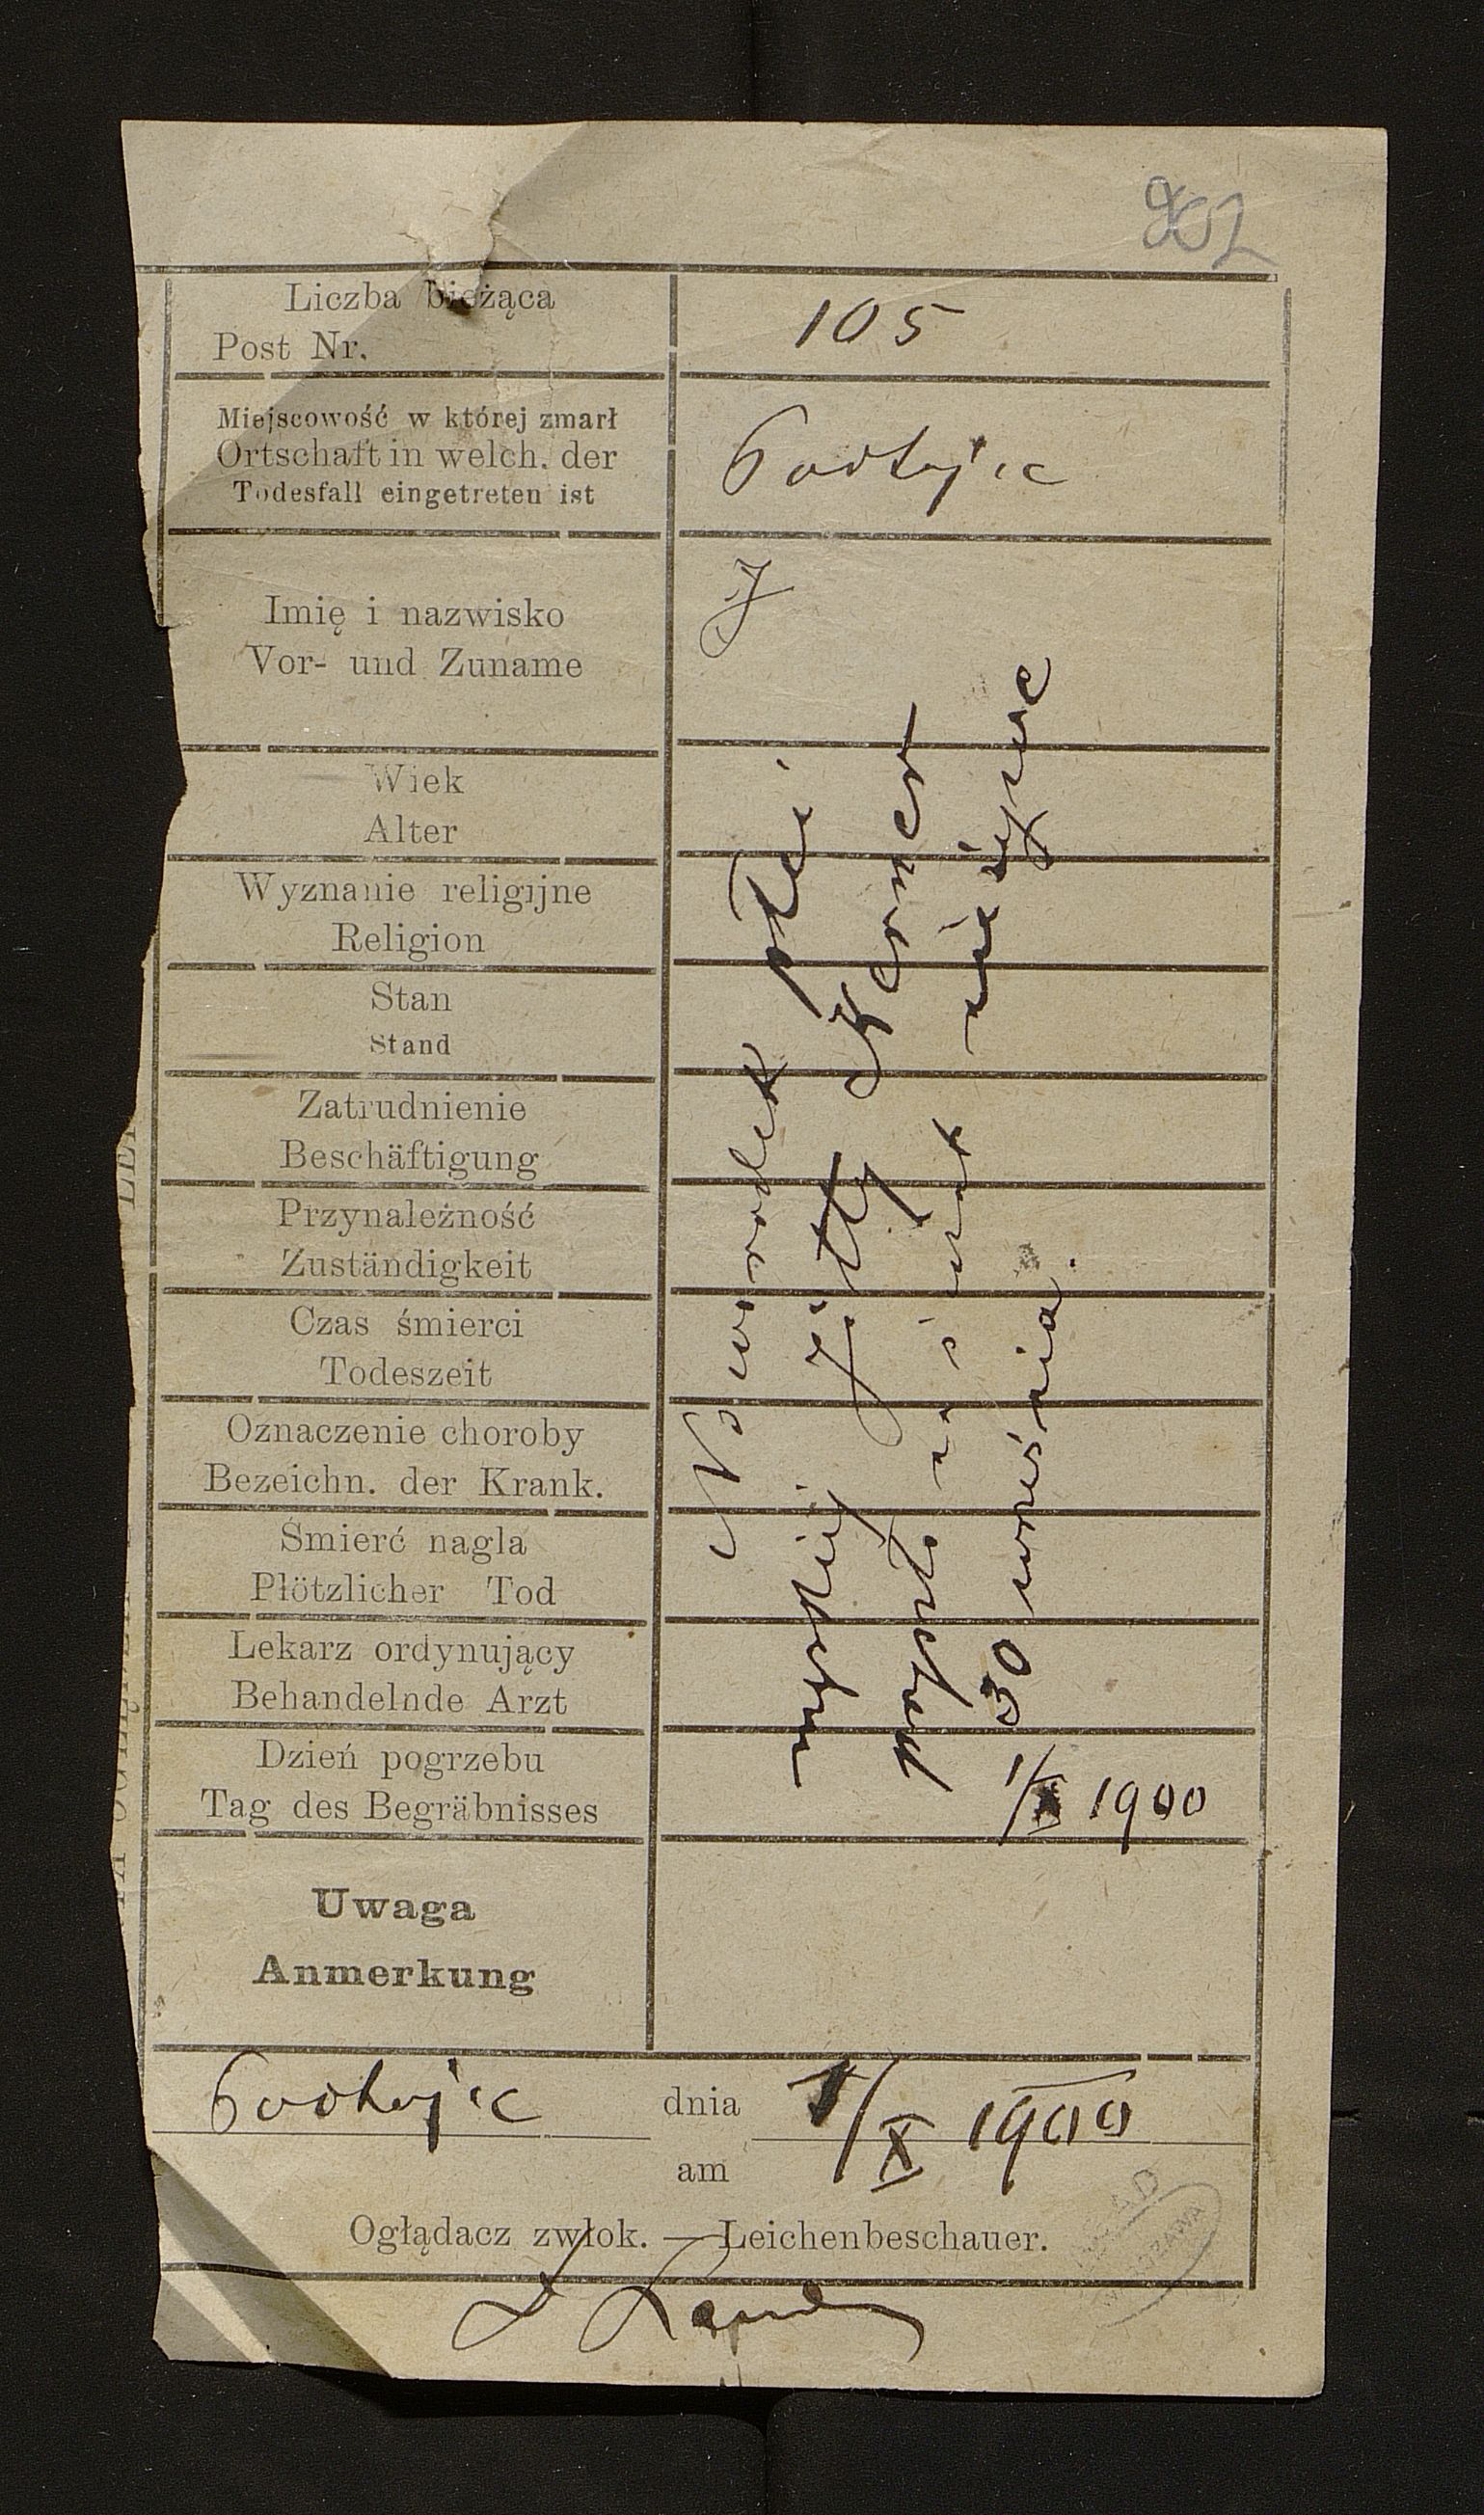 902
Liczba bieżąca
Post Nr.
105
Miejscowość w której zmarł
Ortschaft in welch. der
Todesfall eingetreten ist
Podhajce
Imię i nazwisko
Vor- und Zuname
Wiek
Alter
Wyznanie religijne
Religion
Stan
Stand
Zatrudnienie
Beschäftigung
Przynależność
Zuständigkeit
Czas śmierci
Todeszeit
Oznaczenie choroby
Bezeichn. der Krank.
Śmierć nagla
Plötzlicher Tod
Lekarz ordynujący
Behandelnde Arzt
Dzień pogrzebu
Tag des Begräbnisses
Noworodek płci
męskiej Jitty Kerner
nieżywe
30 września.
1/X 1900
Uwaga
Anmerkung
Podhajce dnia 1/X 1900
am
Oglądacz zwłok. — Leichenbeschauer.